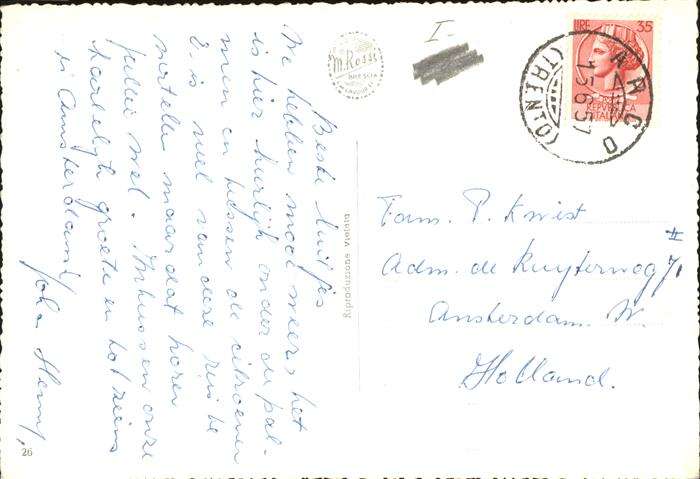 Beste luitjes
We hebben mooi weer, het
is hier heerlijk onder de pal-
men en tussen de citroenen
E. is veel van deze reis te
vertellen maar dat horen
jullie wel. Intussen onze
hartelijke groeten en tot ziens
in Amsterdam!
Joh. Henny,
M. Rossi
I-
LIRE 35
REPUBBLICA
ITALIANA
ARCO
(TRENTO)
15.6.57
Riproduzione vietata
Fam. P. Kwist
Adm. de Ruyterweg 71 II
Amsterdam. W.
Holland.
26